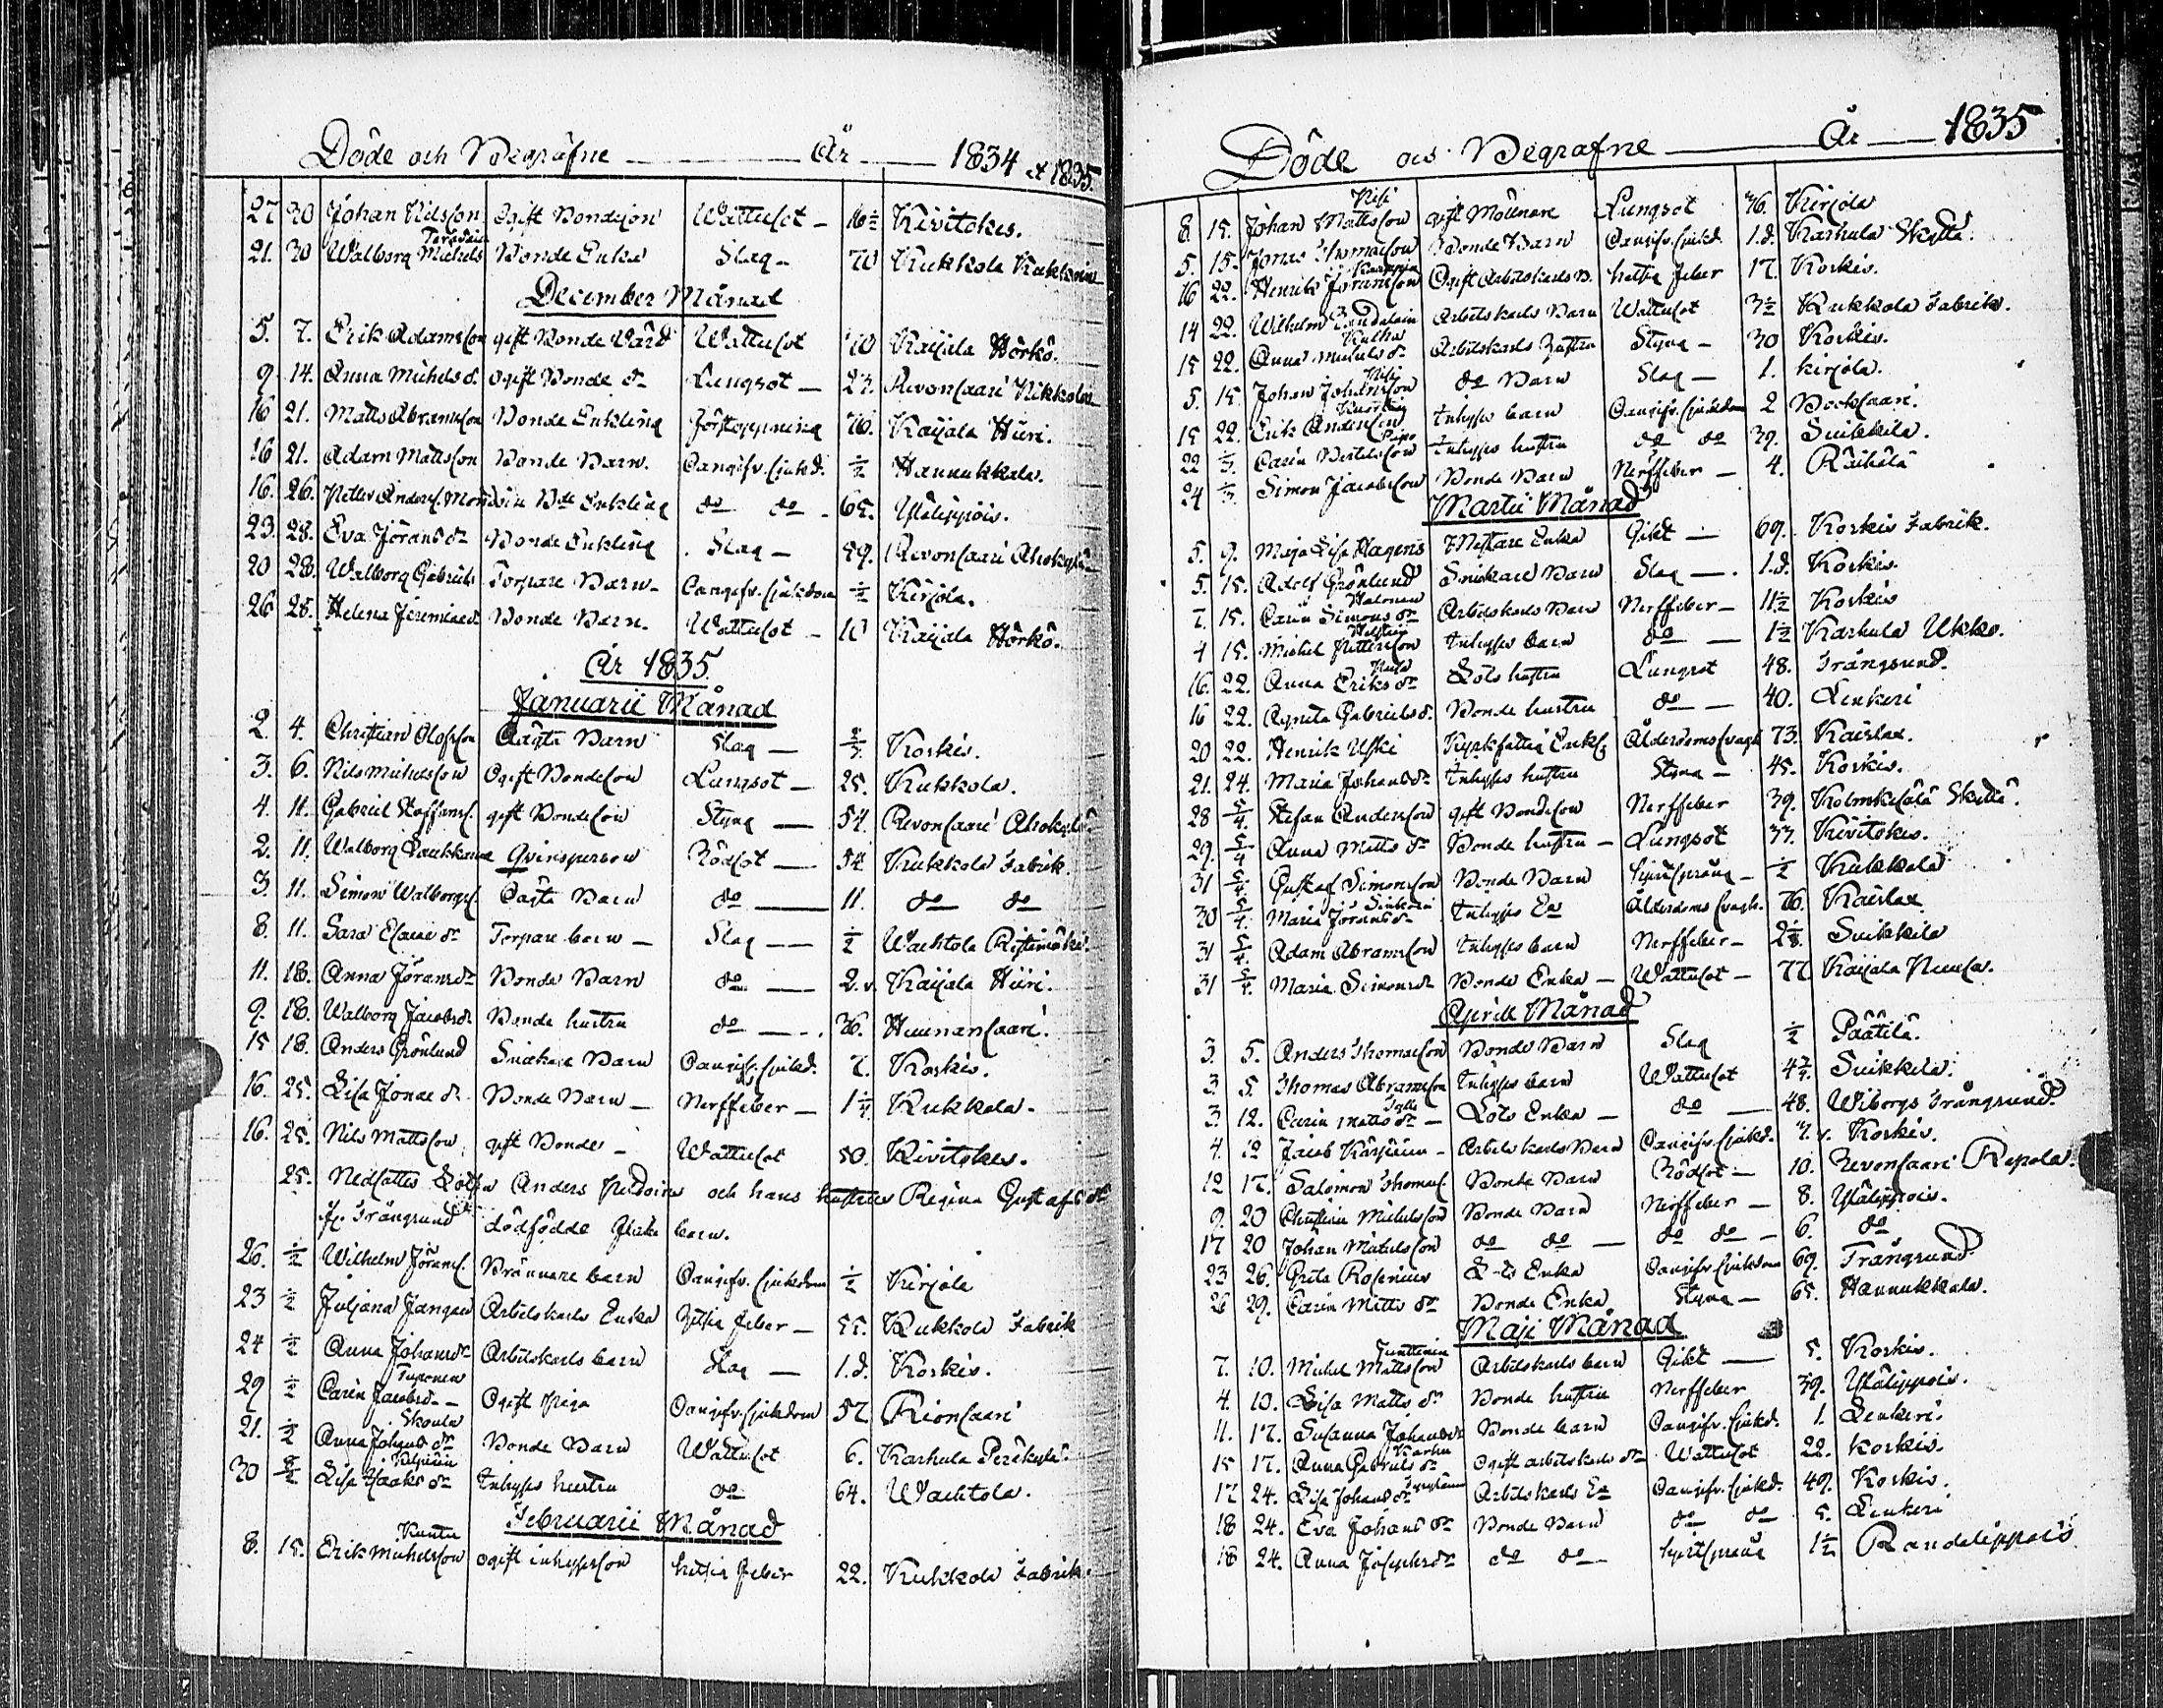 Döde och Begrafne År 1834 et 1835.
27 30 Johan Nilsson Ogift Bondeson Wattusot - 16½ Kivitokes.
21. 30 Walborg Michels Bonde Enka Slag - 70 Kukkola
December Månad
5. 7. Erik Adamsson gift Bonde Wärd Wattusot 70 Kaijala Hörkö.
9. 14. Anna Michels dr ogift Bonde dr Lungsot - 27. Revonsaari Nikkola
16 21. Matts Abramsson Bonde Enkling Förstoppning 76. Kaijala Hiiri.
16 21. Adam Mattsson Bonde Barn. Oangifv. sjukd. ½ Hannukkala.
16. 26. Petter Anders. Bde Enkling do do 65. Yläjppois.
23. 28. Eva Jörans dr Bonde Enkling Slag - 59. Revonsaari
20 28. Walborg Gabriels Torpare Barn - Oangifv. sjukdom ½ Kirjola.
26 28. Helena Jeremiaed. Bonde Barn. Wattusot - 10 Kaijala Hörkö.
År 1835.
Januarii Månad
2. 4. Christian Olofsson Oägta Barn Slag - Koskis.
3. 6. Nils Michelsson Ogift Bondeson Lungsot - 25. Kukkola.
4. 11. Gabriel Staffans. gift Bondeson Styng - 54. Revonsaari
2. 11. Walborg Laukkanen Qvinsperson Rödsot - 54 Kukkola Fabrik.
3. 11. Simon Walborgs. Oägta Barn do 11. do do
8. 11. Sara Esaiæ dr Torpare barn - Slag - ½ Wachtola Ristimäki.
11. 18. Anna Jöransdr Bonde Barn do - 2.v. Kaijala Hiiri.
9. 18. Walborg Jacobsdr Bonde hustru do - 36. Huunansaari.
15 18. Anders Grönlund Snickare Barn Oangifv. sjukd. 7. Koskis.
16. 25. Lisa Jonæ dr. Bonde Barn - Nerffeber - 1¼ Kukkola.
16. 25. Nils Mattsson gift Bonde - Wattusot 50. Kivitokes.
25. Nedsattes Anders och hans hustrus Regina Gustafs dr
fr. Trångsund dödfödde flicke barn.
26. ½ Wilhelm Jörans. Brännare barn Oangifv. sjukdom ½ Kirjola
23 ½ Juljana Jangaen Arbetskarls Enka hettig feber - 55. Kukkola Fabrik
24 ½ Anna Johansdr Arbetskarls barn Slag - 1.d. Koskis.
29 ½ Carin Jacobsd. - Ogift Piga Oangifv. sjukdom 57 Revonsaari
21. ½ Anna Johans dr Skoula Bonde Barn Wattusot 6. Karhula Peräkylä.
30 Lisa Isaaks dr Inhyses hustru do 64. Wachtola.
Februarii Månad
8. 15. Erik Michelsson Kuntu ogift inhysesson hettig feber 22. Kukkola Fabrik.
Döde och Begrafne År 1835
8. 15. Johan Mattsson gift Möllnare Lungsot 36. Kirjola
5. 15. Jonas Thomasson Bonde Barn Oangifv. sjukd. 1.d. Karhula Skyttä.
16 22. Henrik Jöransson Ogift Arbetskarls B. hettig feber 17. Koskis.
14 22. Wilhelm Arbetskarls Barn Wattusot 3½ Kukkola Fabrik.
15 22. Anna Michels dr Arbetskarls hustru Styng - 30 Koskis.
5. 15. Johan Johansson do Barn Slag - 1. Kirjola.
15 22. Erik Andersson Inhyses barn Oangifv. sjukdom 2 Bocksaari.
22 1/3. Carin Inhyses hustru do do 39. Suikkila.
24 1/3. Simon Jacobsson Bonde Barn Nerffeber - 4. Räihälä
Martii Månad
5. 9. Maja Lisa Hagens Mästare Enka Gikt - 69. Koskis Fabrik.
5. 15. Adolf Grönlund Snickare Barn Slag - 1.d. Koskis.
7. 15. Carin Simons dr Halonen Arbetskarls Barn Nerffeber - 11½ Koskis
4 15. Michel Pettersson Inhyses barn do - 1½ Karhula Ukko.
16. 22. Anna Eriks dr Lots hustru Lungsot 48. Trångsund.
16 22. Agneta Gabriels d. Bonde hustru do - 40. Lenkeri
20 22. Henrik Uski Kyrkfattig Enkl. Ålderdomssvagh. 73. Kaislax.
21. 24. Maria Johans dr Inhyses hustru Styng - 45. Koskis.
28 5/4. Stefan Andersson gift Bondeson Nerffeber 39. Kolmikesälä Skyttä.
29. 5/4 Anna Matts dr Bonde hustru - Lungsot 37. Kivitokes.
31 5/4. Gustaf Simonsson Bonde Barn hjertsprång - ½ Kukkola
30 5/4. Maria Jörans dr Inhyses Ea Ålderdoms svagh. 76. Kaislax
31 5/4. Adam Abramsson Inhyses barn Nerffeber - Suikkila
31 5/4. Maria Simonsdr Bonde Enka - Wattusot - 77. Kaijala
Aprill Månad
3. 5. Anders Thomasson Bonde Barn Slag ½ Päätilä.
3. 5. Thomas Abramsson Inhyses barn Wattusot Suikkila.
3. 12. Carin Matts dr - Lots Enka - do - 48. Wiborgs Trångsund.
4. 12 Jacob Arbetskarls Barn Oangifv. sjukd. 7.v. Koskis.
12 17. Salomon Thomas. Bonde Barn Rödsot - 10. Revonsaari Repola.
9. 20 Christian Michelsson Bonde Barn Nerffeber - 8. Yläjppois.
17 20 Johan Michelsson do do - do do - 6. do
23 26. Greta Rosenius L-ts Enka Oangifv. sjukdom 69. Trångsund.
26 29. Carin Matts dr Bonde Enka Styng - 65. Hannukkala.
Maji Månad
7. 10. Michel Mattsson Junttinen Arbetskarls barn Gikt - 5. Koskis.
4. 10. Lisa Matts dr Bonde hustru Nerffeber 39. Yläjppois.
11. 17. Susanna Johansdr Bonde barn Oangifv. sjukd. 1. Lenkeri.
15 17. Anna Gabriels dr Karhu Ogift arbetskarls dr Wattusot 22. Koskis.
17 24. Lisa Johans dr Arbetskarls Ea Oangifv. sjukd. 49. Koskis.
18 24. Eva Johans dr Bonde Barn do do 5. Lenkeri
18 24. Anna Josephsdr do do - hjertsprång 1½ Randalippois